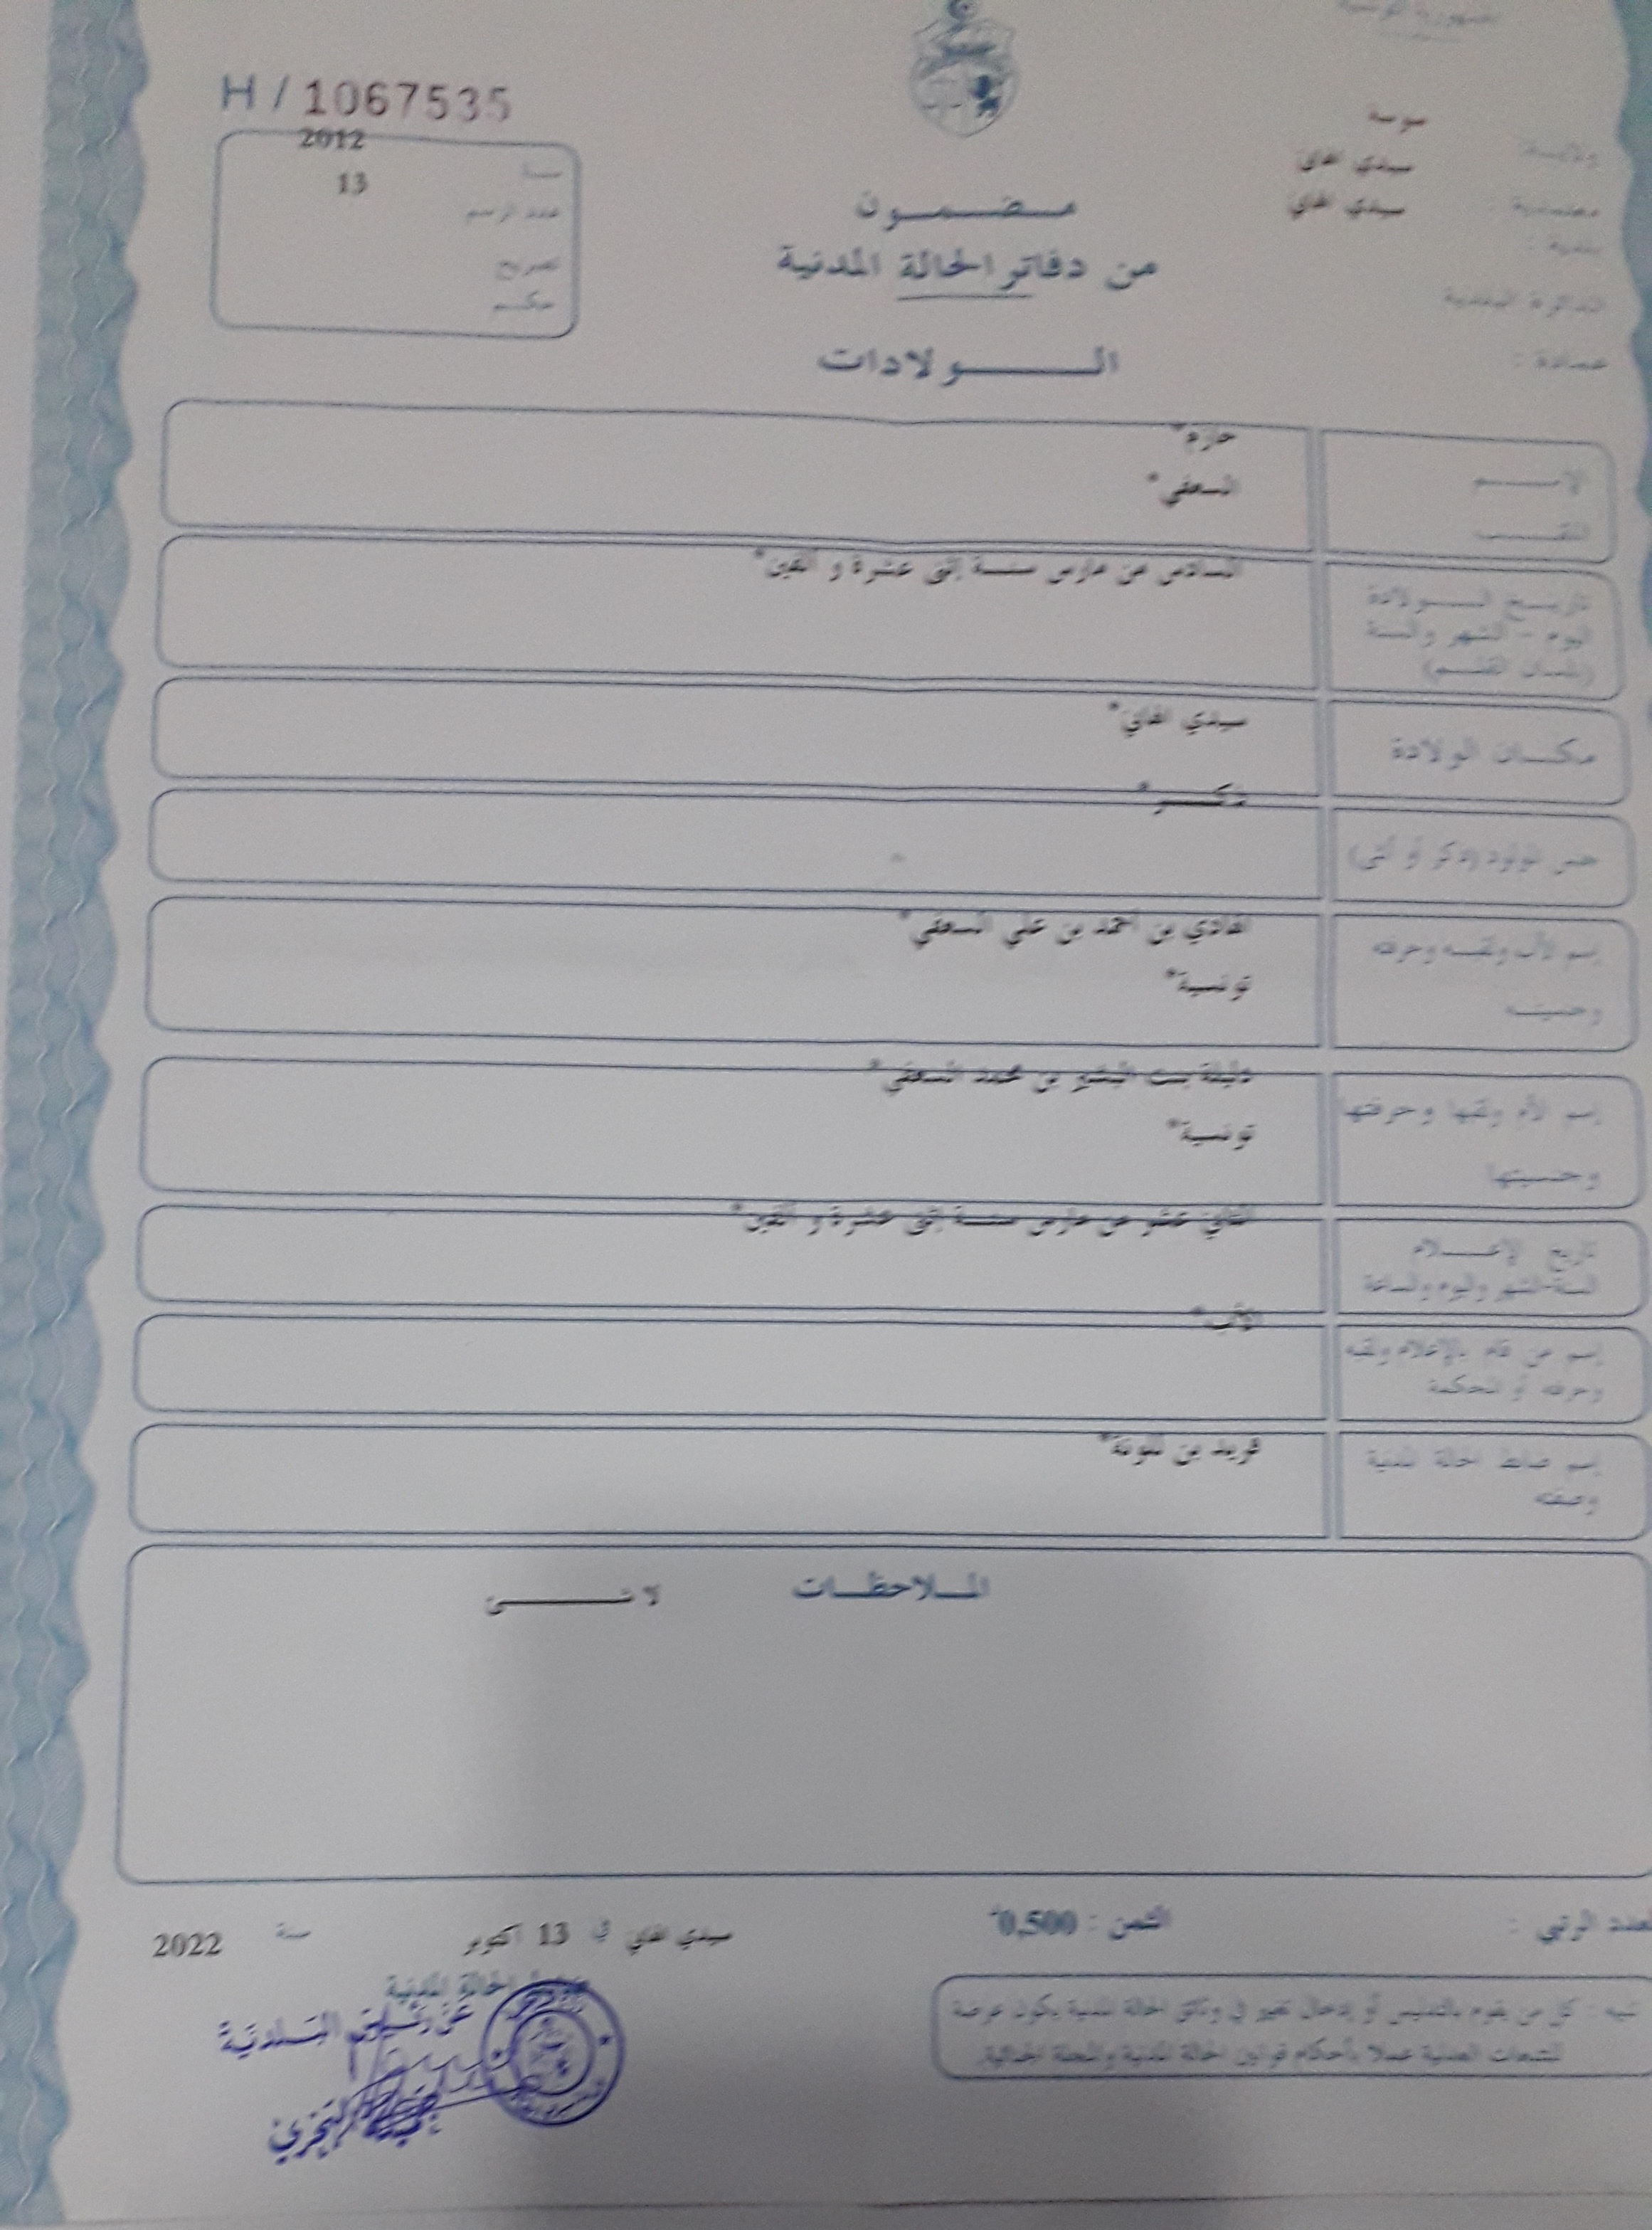 الجمهورية التونسية
H / 1067535
ولايـة : سوسة
معتمدية : سيدي الهاني
بلدية : سيدي الهاني
الدائرة البلدية
عمادة :
سنـة 2012
عدد الرسم 13
تصريح
حكـم
مـضـمـون
من دفاتر الحالة المدنية
الـولادات
الإسـم حازم*
اللقـب السعفي*
تاريـخ الـولادة السادس من مارس سنـة إثنى عشرة و ألفين*
اليوم - الشهر والسنة
(بلسان القلـم)
مكـان الولادة سيدي الهاني*
جنس المولود (ذكر أو أنثى) ذكـر*
إسم الأب ولقبـه وحرفته الهادي بن أحمد بن علي السعفي*
وجنسيتـه تونسية*
إسم الأم ولقبها وحرفتها بنت البشير بن محمد السعفي*
وجنسيتها تونسية*
تاريخ الإعـلام عشر من مارس سنـة إثنى عشرة و ألفين*
السنة-الشهر واليوم والساعة
إسم من قام بالإعلام ولقبه الأب*
وحرفته أو المحكمة
إسم ضابط الحالة المدنية فريد بن*
وصفته
المـلاحظـات لا شـئ
العدد الرتبي :
الثمن : 0,500د
سيدي الهاني في 13 أكتوبر سنة 2022
ضابط الحالة المدنية
عن رئيس البلدية
تنبيه : كل من يقوم بالتدليس أو إدخال تغيير في وثائق الحالة المدنية يكون عرضة
للتتبعات العدلية عملا بأحكام قوانين الحالة المدنية والمجلة الجنائية.